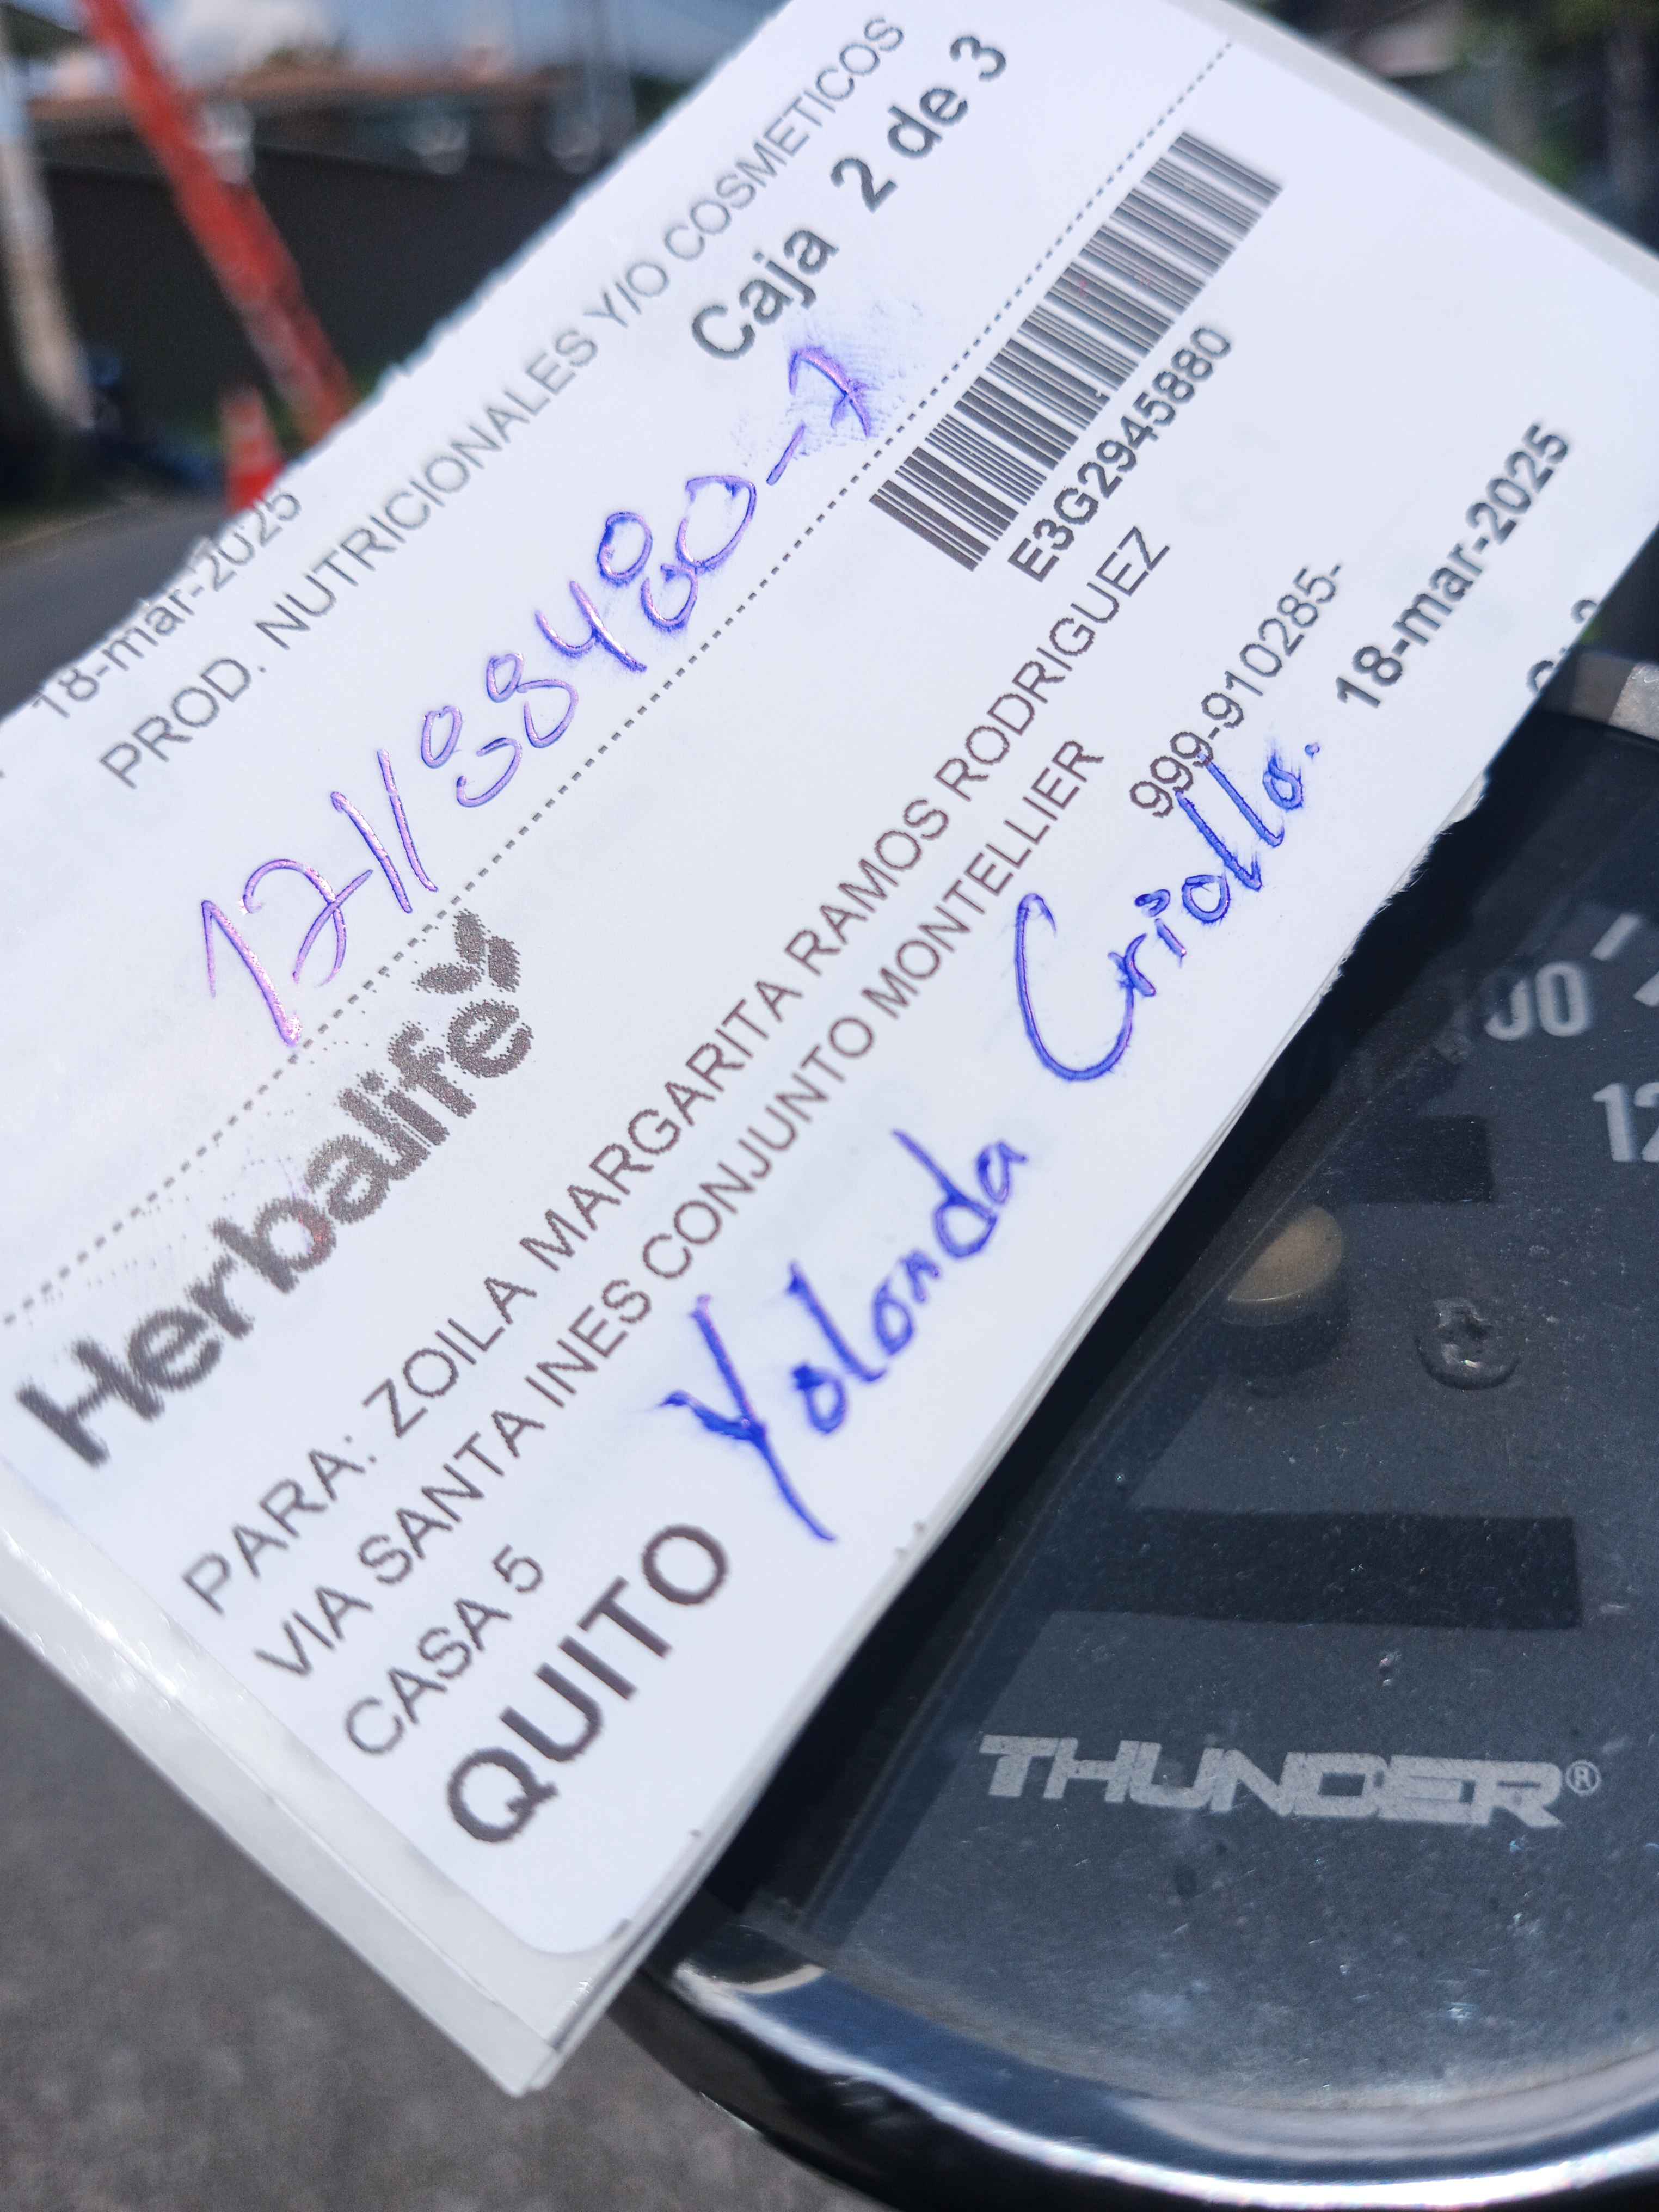 18-mar-2025
PROD. NUTRICIONALES Y/O COSMETICOS
Caja 2 de 3
171138480-7
Herbalife
E3G2945880
PARA: ZOILA MARGARITA RAMOS RODRIGUEZ
VIA SANTA INES CONJUNTO MONTELLIER
CASA 5
999-910285-
QUITO
18-mar-2025
Yolanda Criollo.
THUNDER®